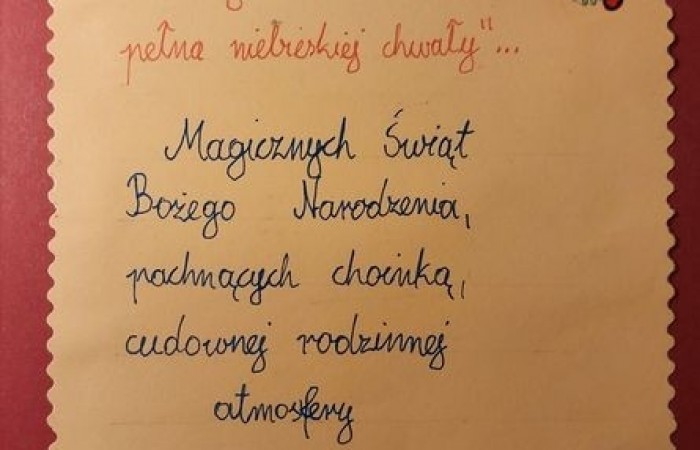 pełna niebieskiej chwały"...
Magicznych Świąt
Bożego Narodzenia,
pachnących choinką,
cudownej rodzinnej
atmosfery